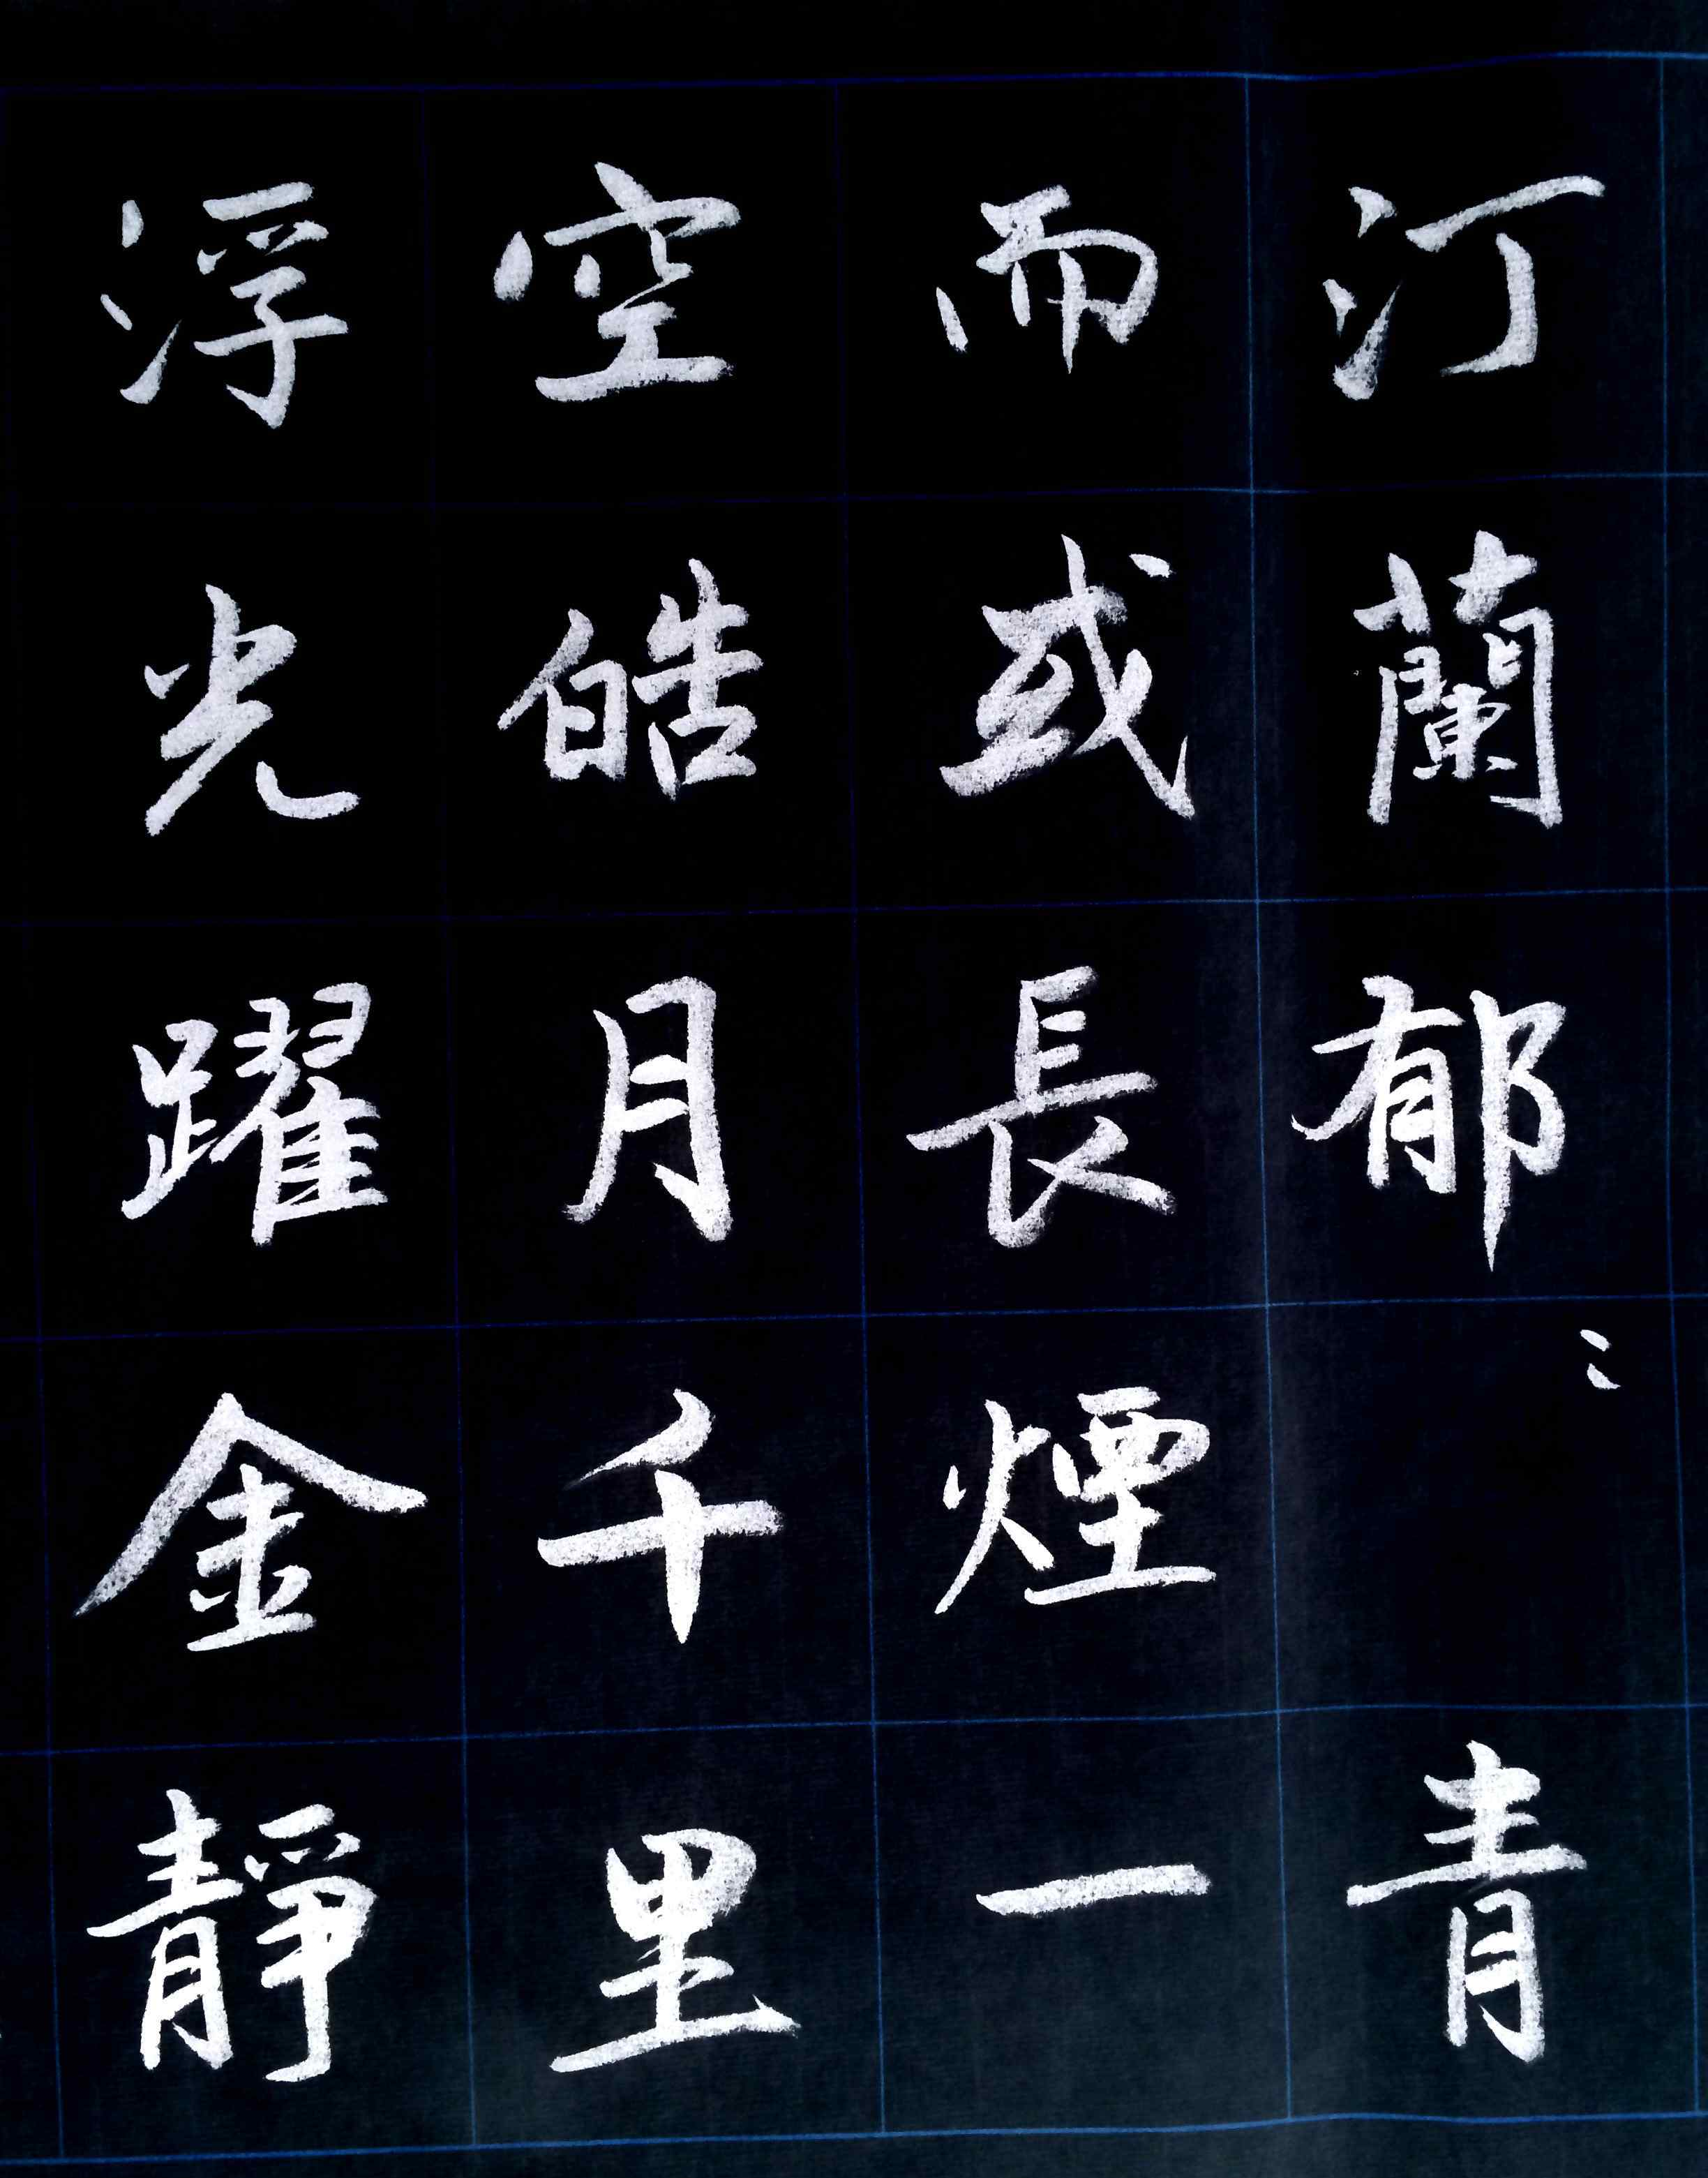 汀蘭郁〻青
而或長煙一
空皓月千里
浮光躍金靜